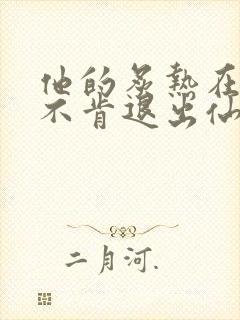 他的炙热在
不肯退出仙
二月河.